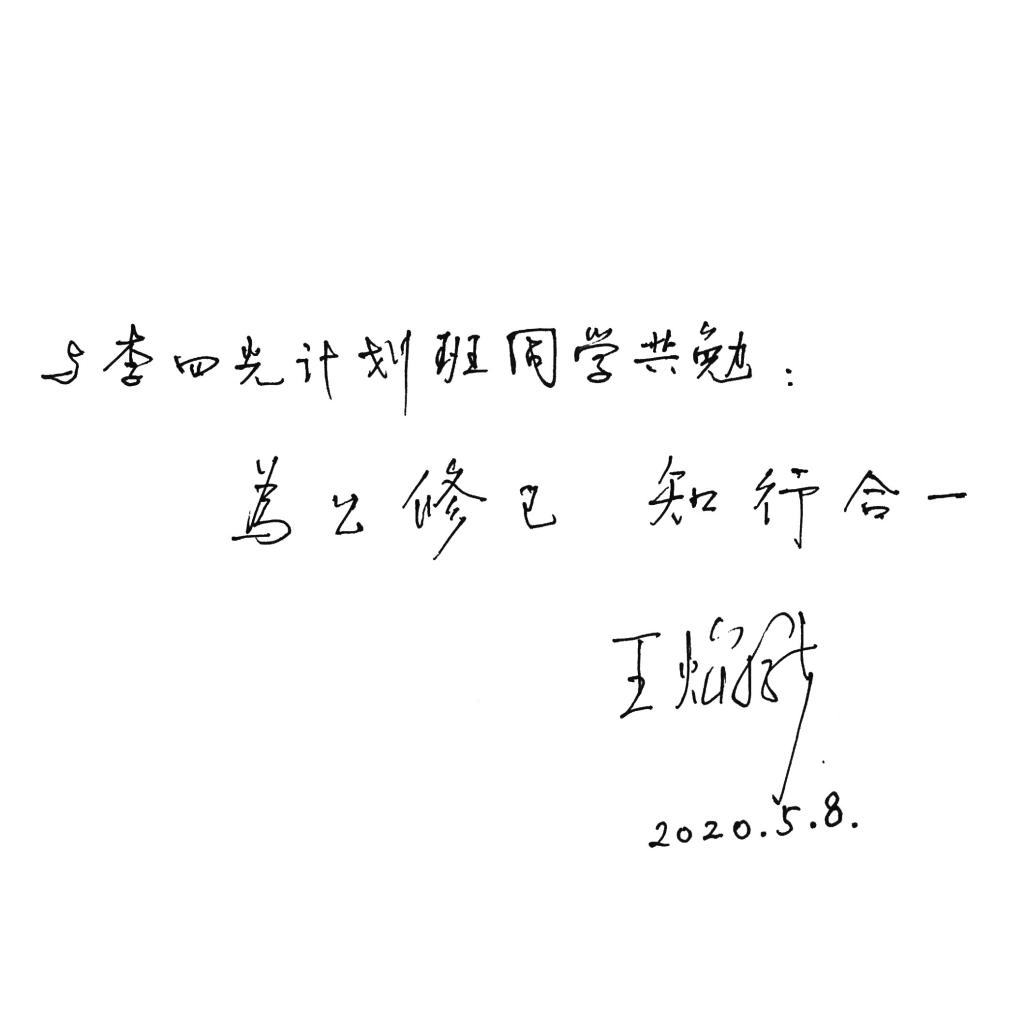 与李四光计划班同学共勉:
為公修己 知行合一
王焰新
2020.5.8.